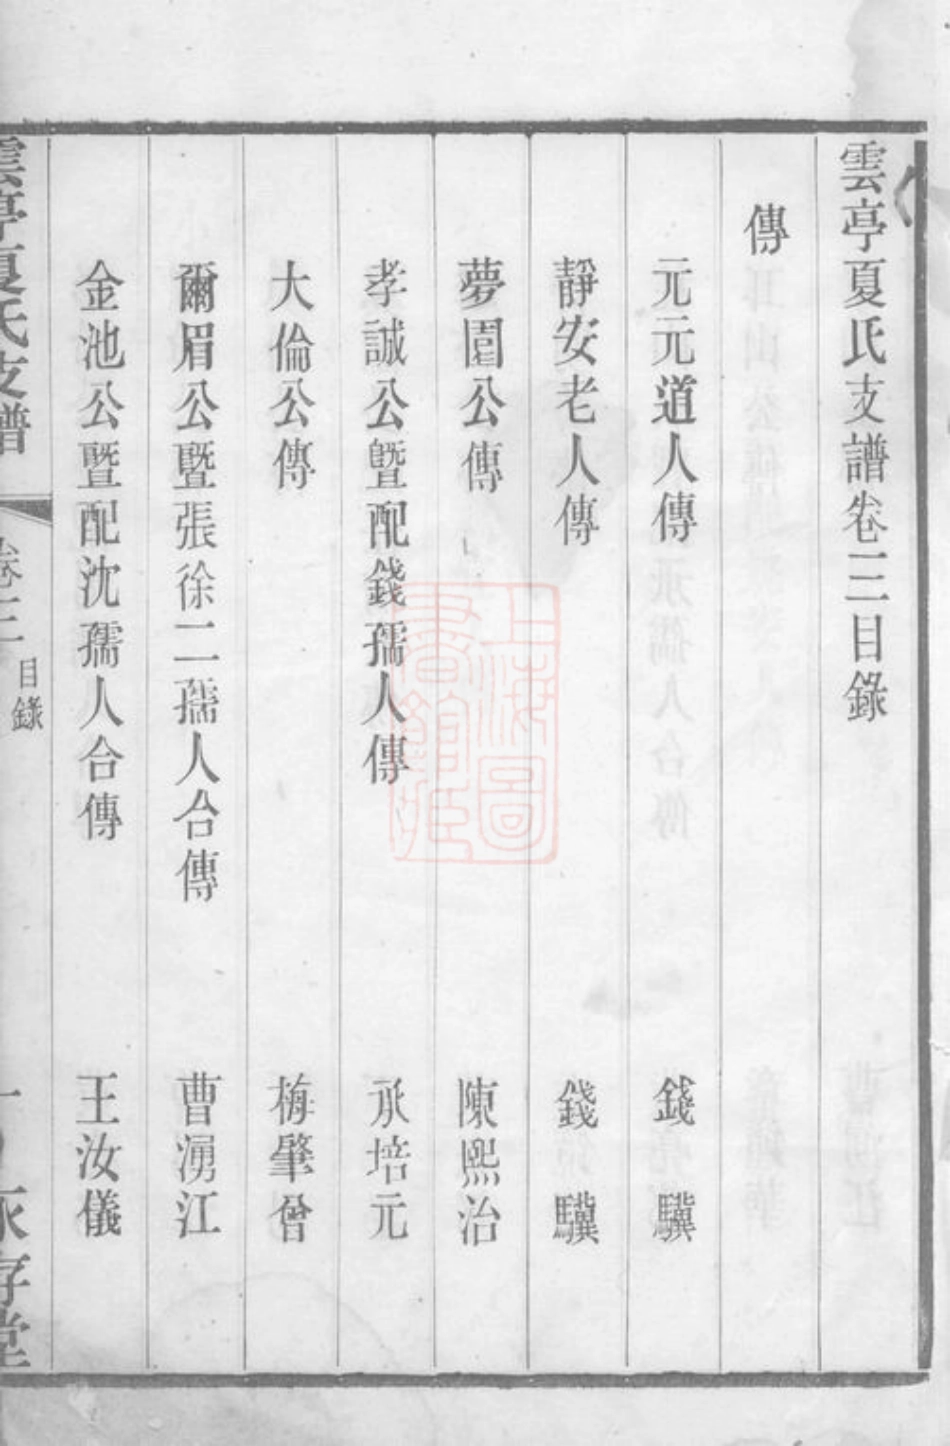 雲亭夏氏支譜卷三目錄
傳
元元道人傳 錢驥
靜安老人傳 錢驥
夢園公傳 陳熙治
孝誠公曁配錢孺人傳 承培元
大倫公傳 梅肇曾
爾眉公曁張徐二孺人合傳 曹湧江
金池公曁配沈孺人合傳 王汝儀
雲亭夏氏支譜 卷三 目錄 一 永存堂
上海圖書館藏